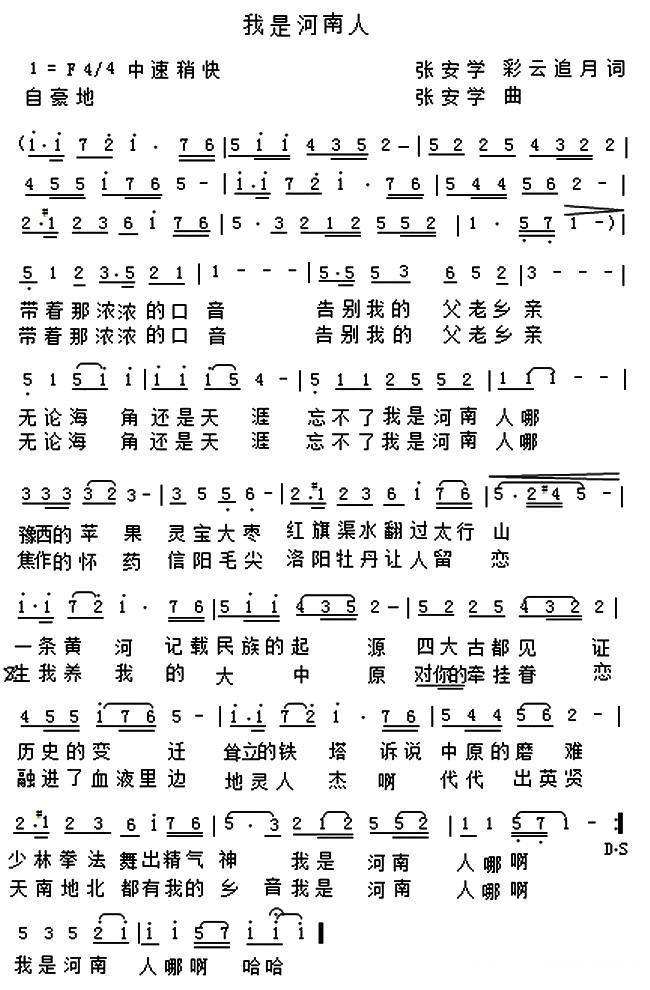 我是河南人
1=F 4/4 中速稍快 张安学 彩云追月 词
自豪地 张安学 曲
(i·i 7 2 i· 7 6 | 5 i i 4 3 5 2 – | 5 2 2 5 4 3 2 2 |
4 5 5 i 7 6 5 - | i·i 7 2 i· 7 6 | 5 4 4 5 6 2 - |
2·#1 2 3 6 i 7 6 | 5· 3 2 1 2 5 5 2 | 1· 5 7 1 -)|
5 1 2 3·5 2 1 | 1 - - - | 5·5 5 3 6 5 2 | 3 - - - |
带着那浓浓的口音 告别我的 父老乡亲
带着那浓浓的口音 告别我的 父老乡亲
5 1 5 i i | i i i i 5 4 - | 5 1 1 2 5 5 2 | 1 1 1 - - |
无论海 角还是天 涯 忘不了我是河南 人哪
无论海 角还是天 涯 忘不了我是河南 人哪
3 3 3 3 2 3 - | 3 5 5 6 - | 2·#1 2 3 6 i 7 6 | 5·2#4 5 - |
豫西的 苹 果 灵宝大枣 红旗渠水翻过太行 山
焦作的 怀 药 信阳毛尖 洛阳牡丹让人留 恋
i·i 7 2 i· 7 6 | 5 i i 4 3 5 2 - | 5 2 2 5 4 3 2 2 |
一条黄 河 记载民族的起 源 四大古都见 证
生我养 我 的 大 中 原 对你的牵挂眷 恋
4 5 5 i 7 6 5 - | i·i 7 2 i· 7 6 | 5 4 4 5 6 2 - |
历史的变 迁 耸立的铁 塔 诉说 中原的磨 难
融进了血液里边 地灵人 杰 啊 代代 出英贤
2·#1 2 3 6 i 7 6 | 5· 3 2 1 2 5 5 2 | 1 1 5 7 1 - :|
D·S
少林拳法 舞出精气 神 我是 河南 人哪啊
天南地北 都有我的 乡 音我是 河南 人哪啊
5 3 5 2 i | i i 5 7 i i i ‖
我是河南 人哪啊 哈哈